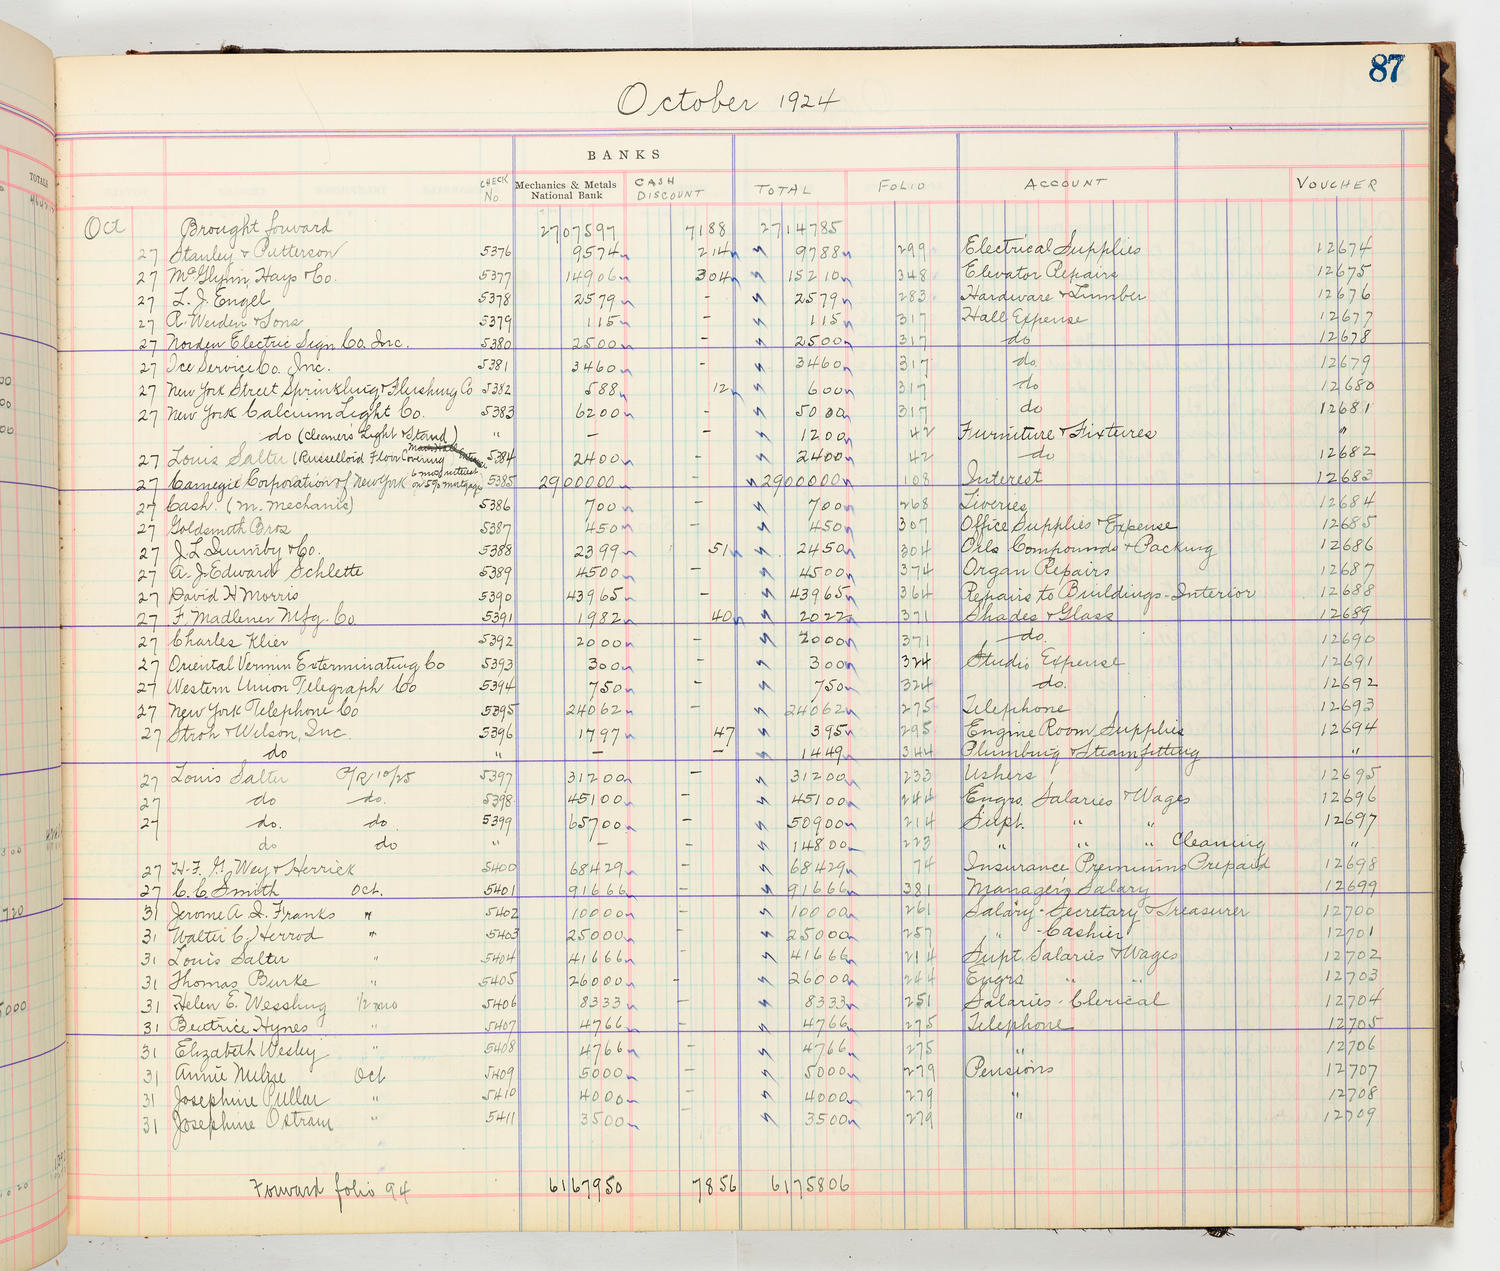 87
October 1924
BANKS
CHECK No. Mechanics & Metals National Bank CASH DISCOUNT TOTAL FOLIO ACCOUNT VOUCHER
Oct Brought forward 2707597 7188 2714785
27 Stanley & Patterson 5376 9574 214 9788 299 Electrical Supplies 12674
27 McGlynn, Hays & Co. 5377 14906 304 15210 348 Elevator Repairs 12675
27 L. J. Engel 5378 2579 - 2579 283 Hardware & Lumber 12676
27 A. Werden & Sons 5379 115 - 115 317 Hall Expense 12677
27 Norden Electric Sign Co. Inc. 5380 2500 - 2500 317 do 12678
27 Ice Service Co. Inc. 5381 3460 - 3460 317 do. 12679
27 New York Street Sprinkling & Flushing Co 5382 588 12 600 317 do 12680
27 New York Calcium Light Co. 5383 6200 - 5000 317 do 12681
do (Cleaners Light & Stand) " - - 1200 42 Furniture & Fixtures "
27 Louis Salter (Russelloid Floor Covering 5384 2400 - 2400 42 do 12682
27 Carnegie Corporation of New York 6 mos interest on 5% mortgage 5385 2900000 - 2900000 108 Interest 12683
27 Cash. (M. Mechanic) 5386 700 - 700 268 Liveries 12684
27 Goldsmith Bros 5387 450 - 450 307 Office Supplies & Expense 12685
27 J. L. Quimby & Co. 5388 2399 51 2450 304 Oils Compounds & Packing 12686
27 A. J. Edward Schlette 5389 4500 - 4500 374 Organ Repairs 12687
27 David H Morris 5390 43965 - 43965 364 Repairs to Buildings - Interior 12688
27 F. Madlener Mfg. Co 5391 1982 40 2022 371 Shades & Glass 12689
27 Charles Klier 5392 2000 - 2000 371 do. 12690
27 Oriental Vermin Exterminating Co 5393 300 - 300 324 Studio Expense 12691
27 Western Union Telegraph Co 5394 750 - 750 324 do. 12692
27 New York Telephone Co 5395 24062 - 24062 275 Telephone 12693
27 Stroh & Wilson, Inc. 5396 1797 47 395 295 Engine Room Supplies 12694
do " - - 1449 344 Plumbing & Steamfitting "
27 Louis Salter P/R 10/25 5397 31200 - 31200 233 Ushers 12695
27 do do. 5398 45100 - 45100 244 Engrs. Salaries & Wages 12696
27 do. do. 5399 65700 - 50900 214 Supt. " " 12697
do do " - 14800 223 " " " Cleaning "
27 H. F. G. Wey & Herrick 5400 68429 - 68429 74 Insurance Premiums Prepaid 12698
27 C. C. Smith Oct. 5401 91666 - 91666 381 Manager's Salary 12699
31 Jerome A. Q. Franks " 5402 10000 - 10000 261 Salary - Secretary & Treasurer 12700
31 Walter C. Herrod " 5403 25000 - 25000 257 " - Cashier 12701
31 Louis Salter " 5404 41666 - 41666 214 Supt. Salaries & Wages 12702
31 Thomas Burke " 5405 26000 - 26000 244 Engrs " " 12703
31 Helen E. Wessling 1/2 mo 5406 8333 - 8333 251 Salaries - Clerical 12704
31 Beatrice Hynes " 5407 4766 - 4766 275 Telephone 12705
31 Elizabeth Wesley " 5408 4766 - 4766 275 " 12706
31 Annie Milne Oct 5409 5000 - 5000 279 Pensions 12707
31 Josephine Pullar " 5410 4000 - 4000 279 " 12708
31 Josephine Ostram " 5411 3500 - 3500 279 " 12709
Forward folio 94 6167950 7856 6175806